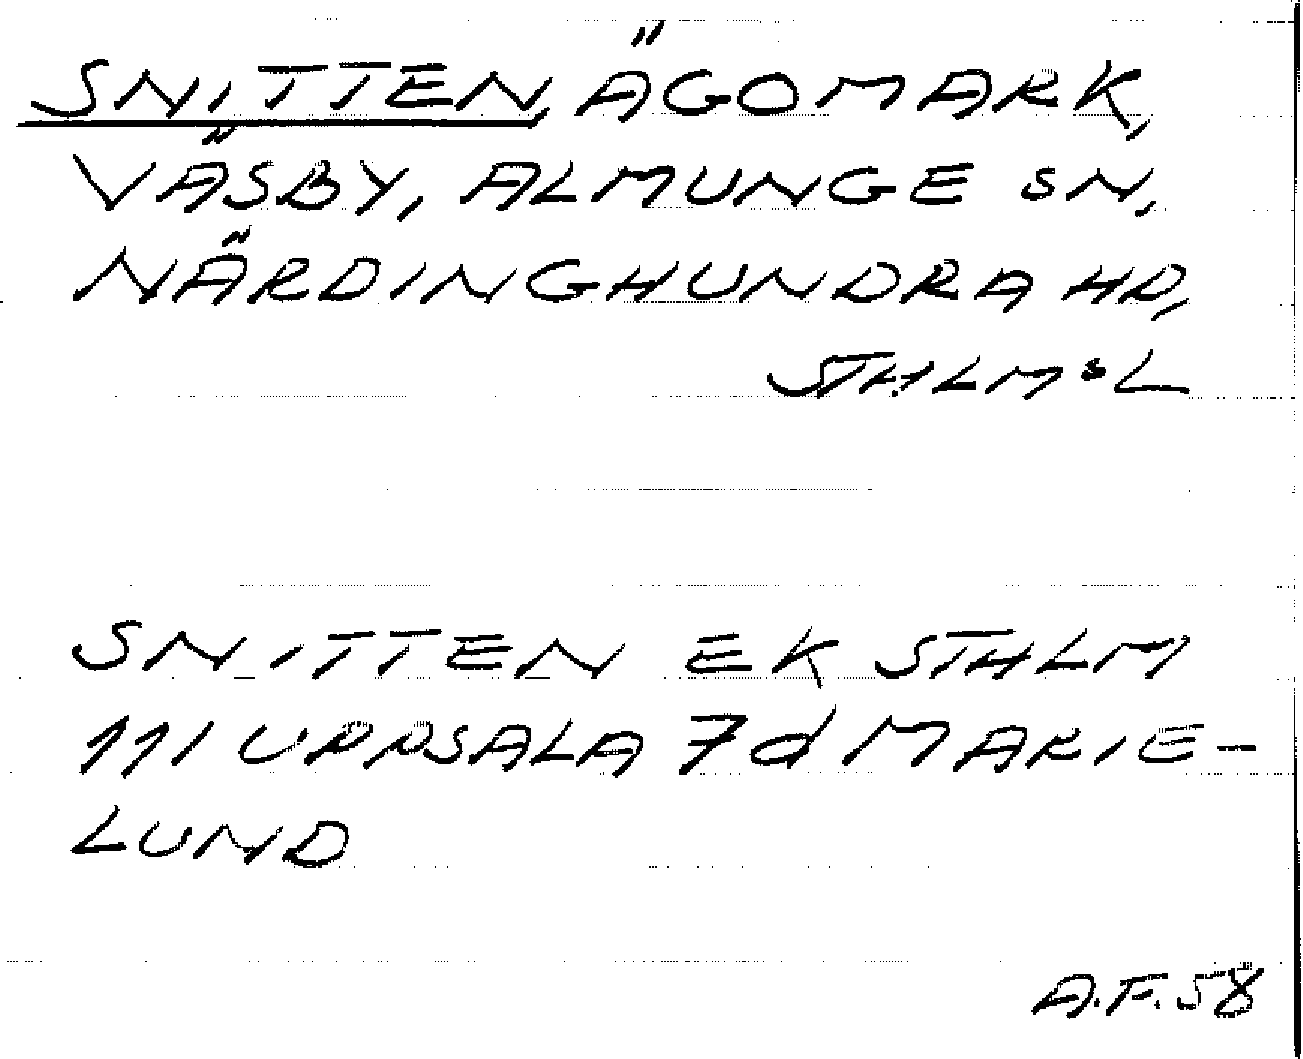 SNITTEN, ÄGOMARK,
VÄSBY, ALMUNGE SN,
NÄRDINGHUNDRA HD,
STHLMSL
SNITTEN EK STHLM
111 UPPSALA 7d MARIE-
LUND
A.F.58